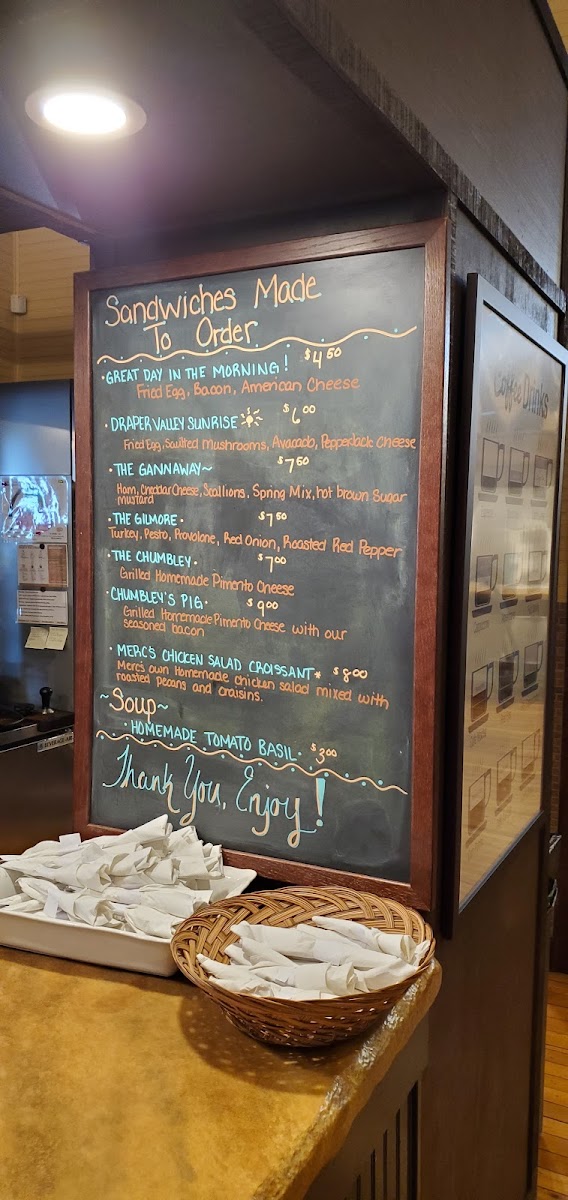 Sandwiches Made
To Order
• GREAT DAY IN THE MORNING! $4.50
Fried Egg, Bacon, American Cheese
• DRAPER VALLEY SUNRISE $6.00
Fried Egg, Sauited Mushrooms, Avacado, Pepperback Cheese
• THE GANNAWAY~ $7.50
Ham, Cheddar Cheese, Scallions, Spring Mix, hot brown Sugar
mustard
• THE GILMORE • $7.50
Turkey, Pesto, Provolone, Red Onion, Roasted Red Pepper
• THE CHUMBLEY • $7.00
Grilled Homemade Pimento Cheese
• CHUMBLEY'S PIG • $9.00
Grilled Homemade Pimento Cheese with our
seasoned bacon
• MERC'S CHICKEN SALAD CROISSANT* $8.00
Merc's own Homemade chicken salad mixed with
roasted pecans and craisins.
~Soup~
• HOMEMADE TOMATO BASIL • $3.00
Thank You, Enjoy!
Coffee Drinks